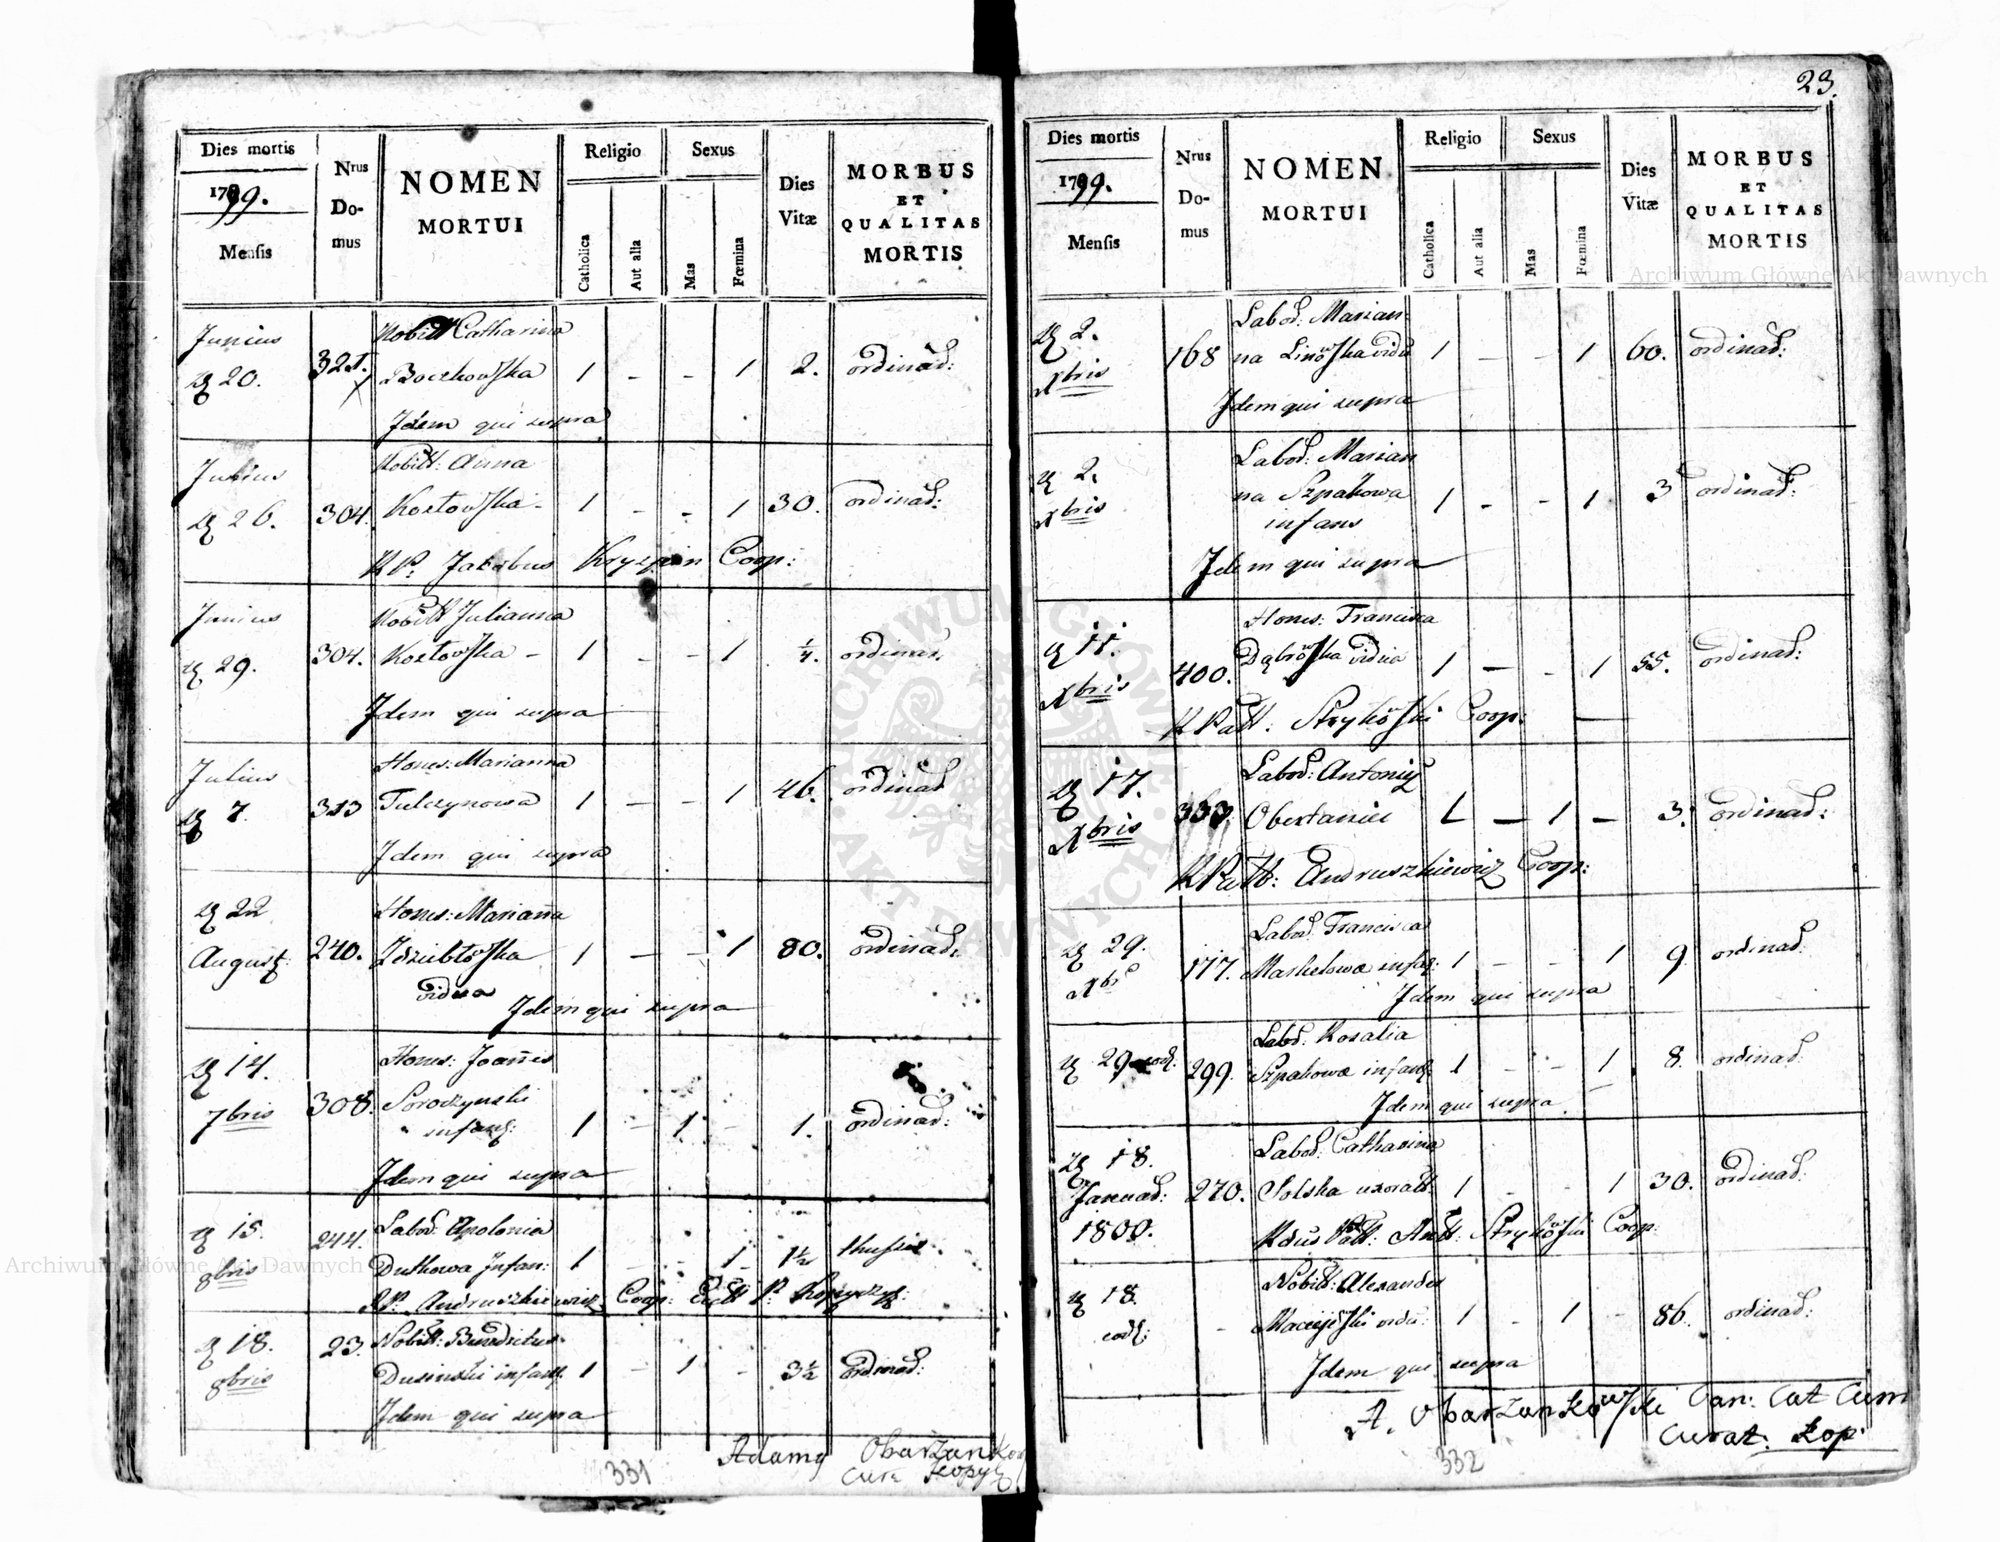 Dies mortis
1799.
Mensis
Nrus Do-mus
NOMEN
MORTUI
Religio
Catholica
Aut alia
Sexus
Mas
Fœmina
Dies
Vitæ
MORBUS
ET
QUALITAS
MORTIS
Junius
20.
321.
Catharina
Boczkowska
1 - - 1 2. ordinad:
Idem qui supra
Junius
26.
304.
Nobill: Anna
Kozłowska -
1 - - 1 30. ordinad:
R P. Jacobus Kryspin Coop:
Junius
29.
304.
Nobill Julianna
Kozłowska -
1 - - 1 1/4. ordinad.
Idem qui supra
Julius
7
313
Hones: Marianna
Tulczynowa
1 - - 1 46. ordinad
Idem qui supra
22
August:
240.
Hones: Mariana
Zdziebłowska
vidua
1 - - 1 80. ordinad.
Idem qui supra
14.
7bris
308.
Hones: Joanes
Soroczynski
infans:
1 - 1 - 1. ordinad:
Idem qui supra
15.
8bris
244.
Labod: Apolonia
Dutkowa Infan:
1 - - 1 1 1/2
RP. Andruszkiewicz Coop:
18.
8bris
23.
Nobill: Benedictus
Dusinski infans
1 - 1 - 3 1/2 ordinad:
Idem qui supra
331
Cura
23.
Dies mortis
1799.
Mensis
Nrus Do-mus
NOMEN
MORTUI
Religio
Catholica
Aut alia
Sexus
Mas
Fœmina
Dies
Vitæ
MORBUS
ET
QUALITAS
MORTIS
2.
Xbris
168
Labod: Marian-
na Linowska vidu
1 - - 1 60. ordinad:
Idem qui supra
2.
Xbris
Labod: Marian
na Szpakowa
infans
1 - - 1 3 ordinad:
Idem qui supra
11.
Xbris
400.
Hones: Francisca
Dąbrowska vidua
1 - - 1 55. ordinad:
R Patt: Strykowski Coop:
17.
Xbris
333.
Labod: Antoni
Obertaniec
1 - 1 - 3. ordinad:
R Patt: Andruszkiewicz Coop:
29.
Xbr
177.
Labod. Francisca
Markelowa infan:
1 - - 1 9 ordinad:
Idem qui supra
29 eod:
299.
Labod. Rosalia
Szpakowa infans
1 - - 1 8. ordinad:
Idem qui supra
18.
Januad:
1800.
270.
Labod: Catharina
Solska uxorat:
1 - - 1 30. ordinad:
Rdus Patt: Antt: Strykowski Coop:
18.
eod:
-
Nobill: Alexander
Maciejewski
1 - 1 - 86. ordinad:
Idem qui supra
A. Obarzankowski Can: Cat
Curat. Łop:
332
Archiwum Główne Akt Dawnych
ARCHIWUM GŁÓWNE · AKT DAWNYCH ·
Archiwum Główne Akt Dawnych